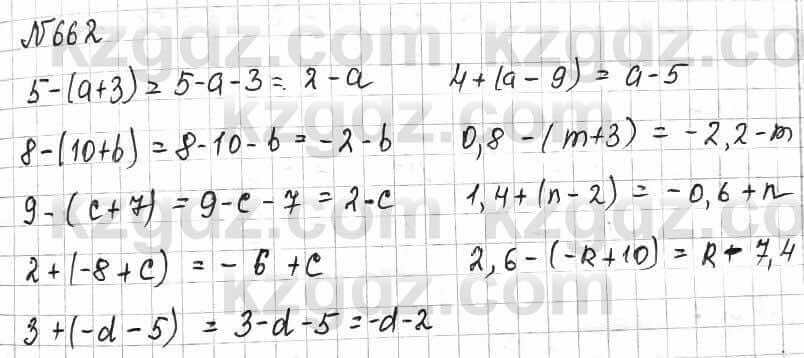 №662
5-(a+3) = 5-a-3 = 2-a
4+(a-9) = a-5
8-(10+b) = 8-10-b = -2-b
0,8-(m+3) = -2,2-m
9-(c+7) = 9-c-7 = 2-c
1,4+(n-2) = -0,6+n
2+(-8+c) = -6+c
2,6-(-k+10) = k-7,4
3+(-d-5) = 3-d-5 = -d-2
kzgdz.com
kzgdz.com
kzgdz.com
kzgdz.com
kzgdz.com
kzgdz.com